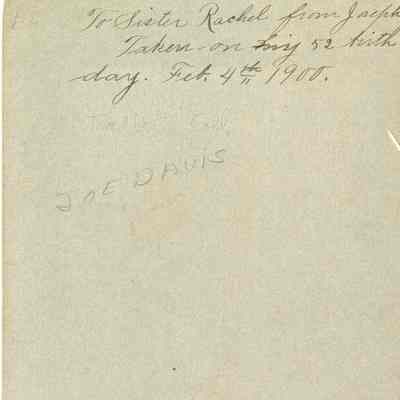 To Sister Rachel from Joseph
Taken on my 52 birth
day. Feb. 4th 1900.
JOE DAVIS